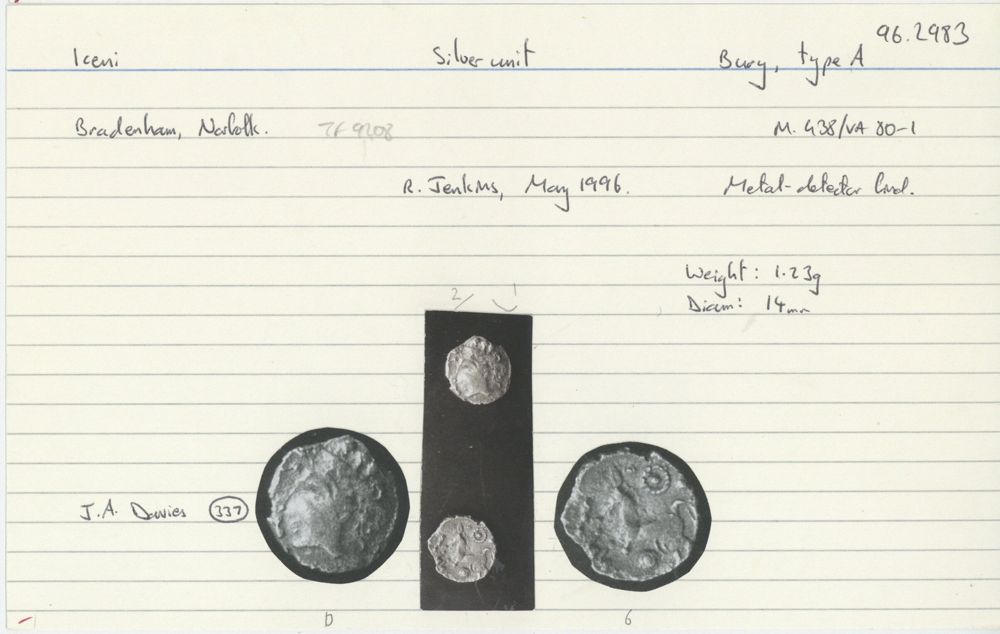 96.2983
Iceni Silver unit Bury, type A
Bradenham, Norfolk. TF 9208 M. 438/VA 80-1
R. Jenkins, May 1996. Metal-detector find.
Weight: 1.23g
Diam: 14mm
2/ 1
J.A. Davies 337
D 6